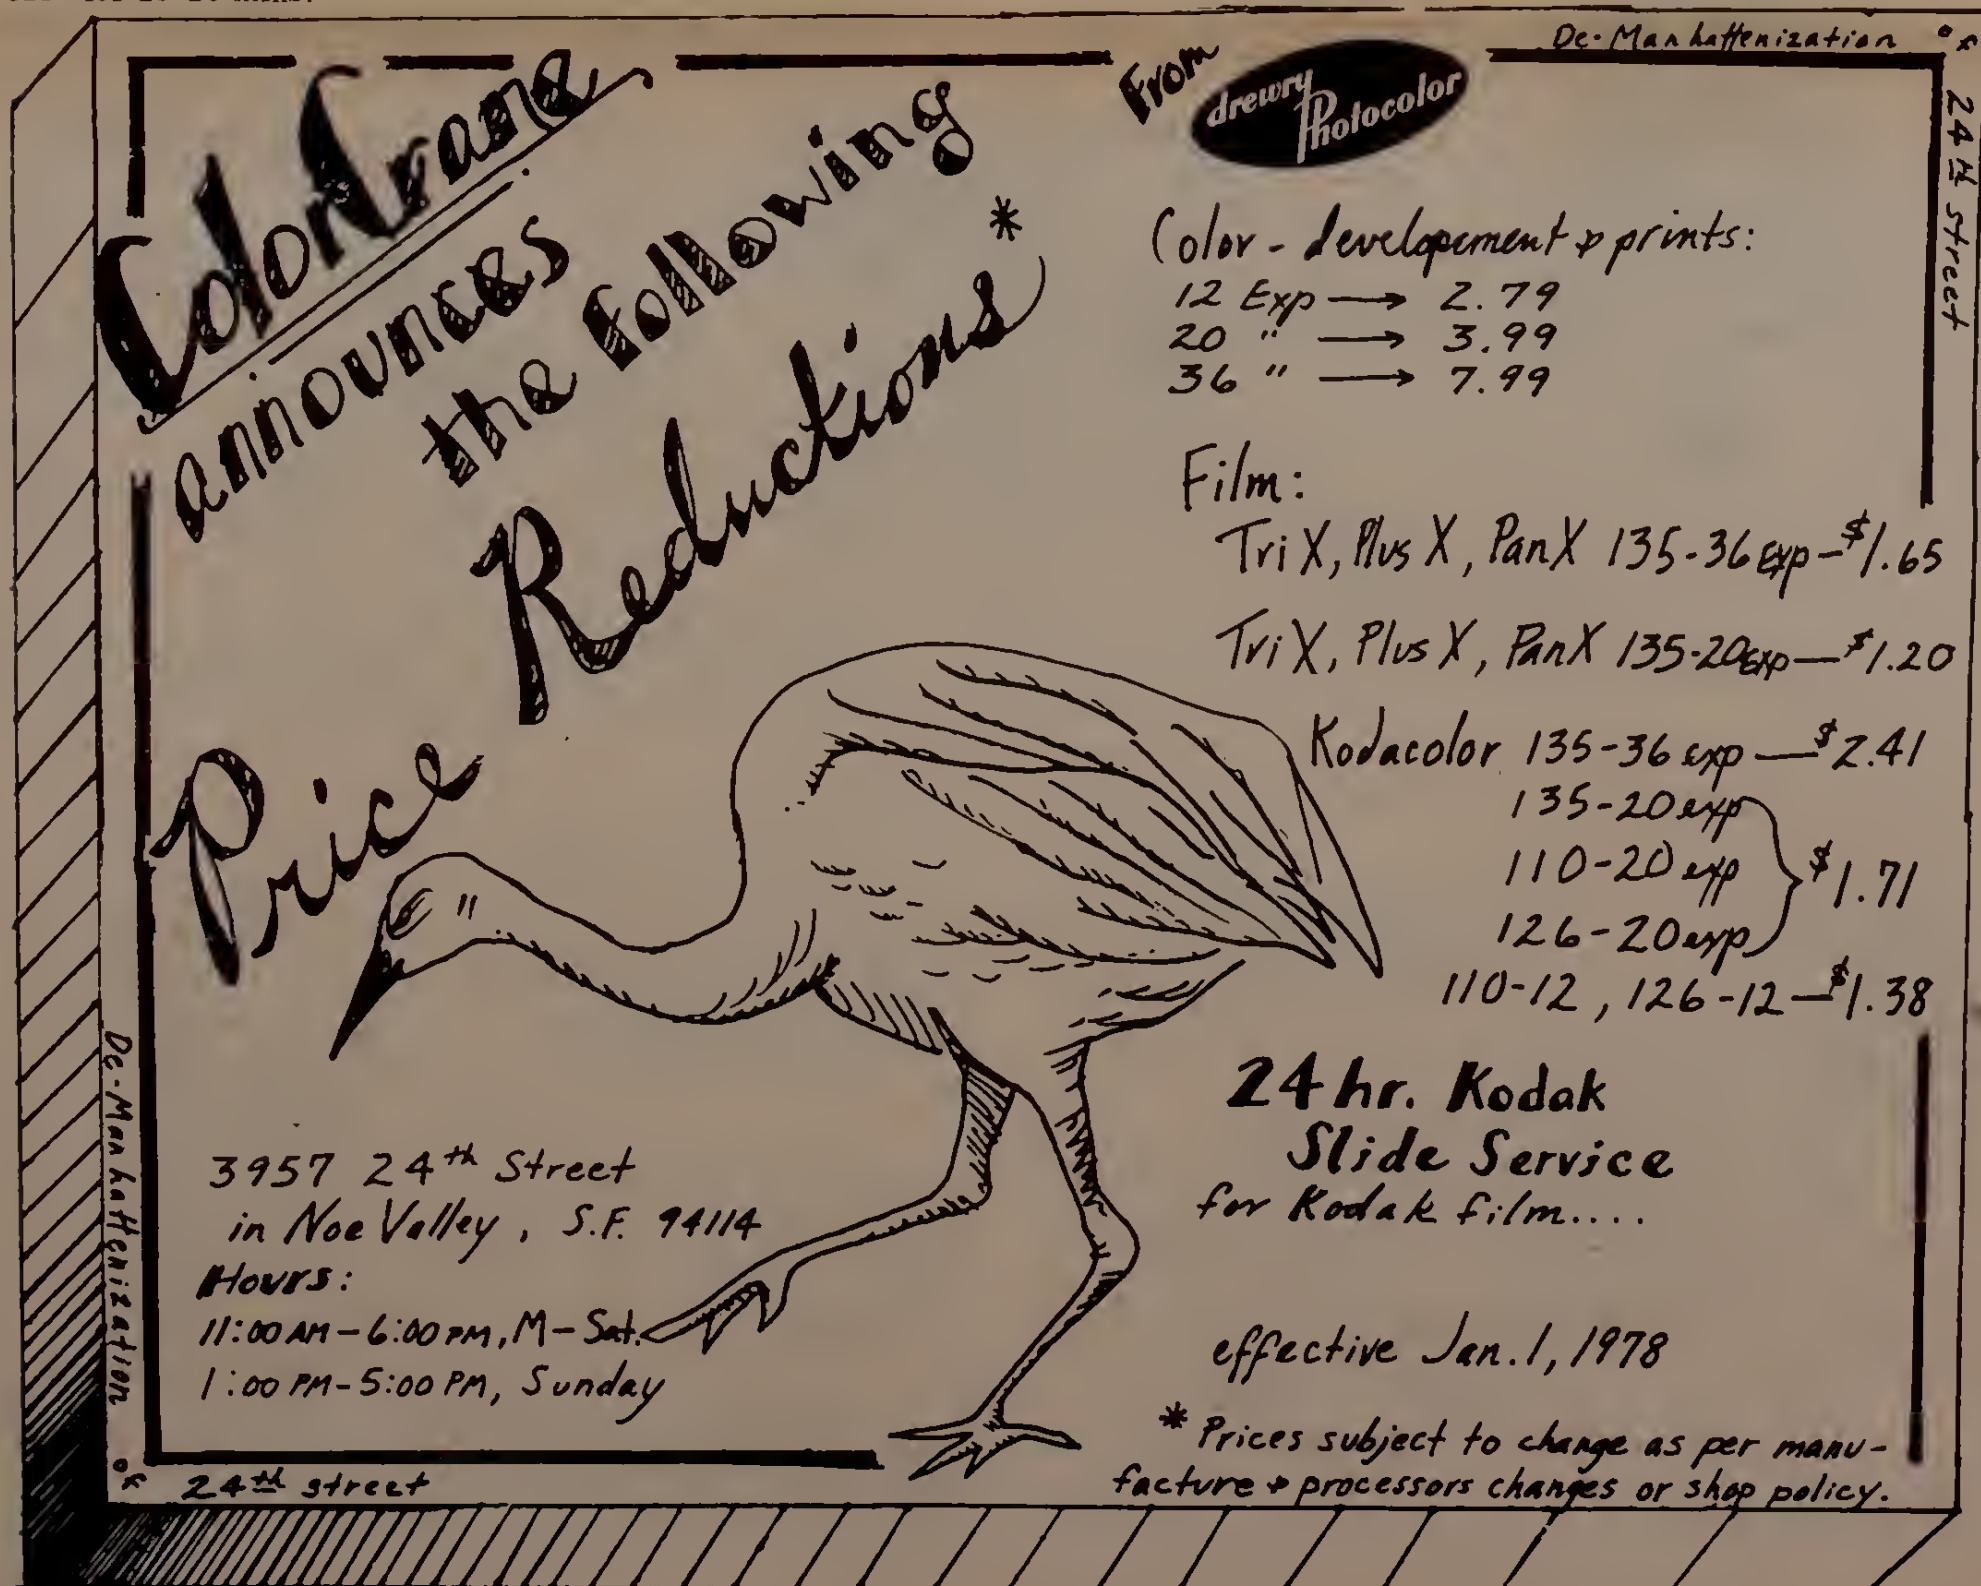 ColorCrane
announces
the following
Price Reductions*
From
drewry Photocolor
Color - developement & prints:
12 Exp → 2.79
20 " → 3.99
36 " → 7.99
Film:
Tri X, Plus X, Pan X 135-36 exp - $1.65
Tri X, Plus X, Pan X 135-20 exp — $1.20
Kodacolor 135-36 exp — $2.41
135-20 exp
110-20 exp
126-20 exp
$1.71
110-12, 126-12 — $1.38
24 hr. Kodak
Slide Service
for Kodak film....
effective Jan. 1, 1978
* Prices subject to change as per manu-
facture & processors changes or shop policy.
3957 24th Street
in Noe Valley, S.F. 94114
Hours:
11:00 AM - 6:00 PM, M - Sat.
1:00 PM - 5:00 PM, Sunday
De-Manhattenization of 24th street
De-Manhattenization of 24th street